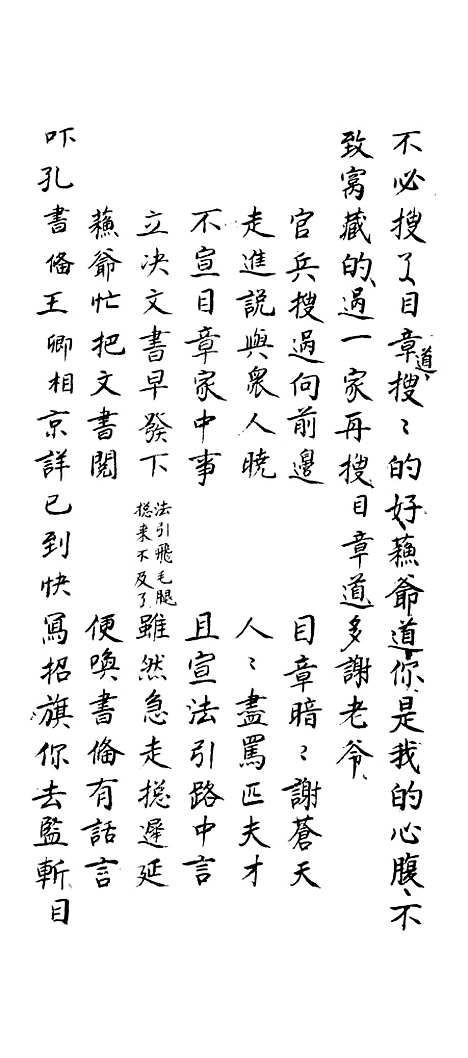 不必搜了目章道搜〻的好蘓爺道你是我的心腹不
致窩藏的過一家再搜目章道多謝老爷
官兵搜過向前邊　目章暗〻謝蒼天
走進説與衆人曉　人〻盡罵匹夫才
不宣目章家中事　且宣法引路中言
立决文書早發下　法引飛毛腿搃来不及了　雖然急走搃遲延
蘓爺忙把文書閱　便喚書俻有話言
吓孔書俻王卿相京詳已到快寫招旗你去監斬目